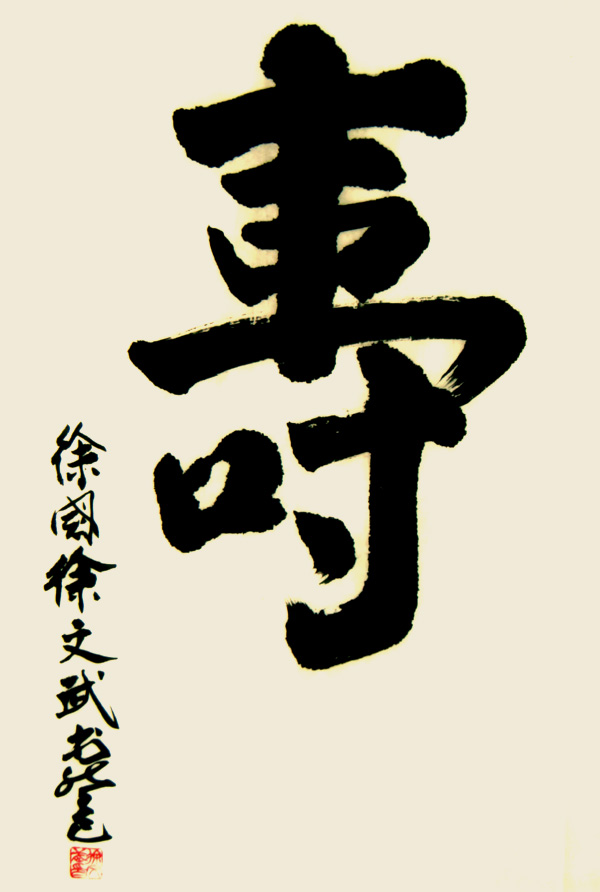 壽
徐國徐文武书